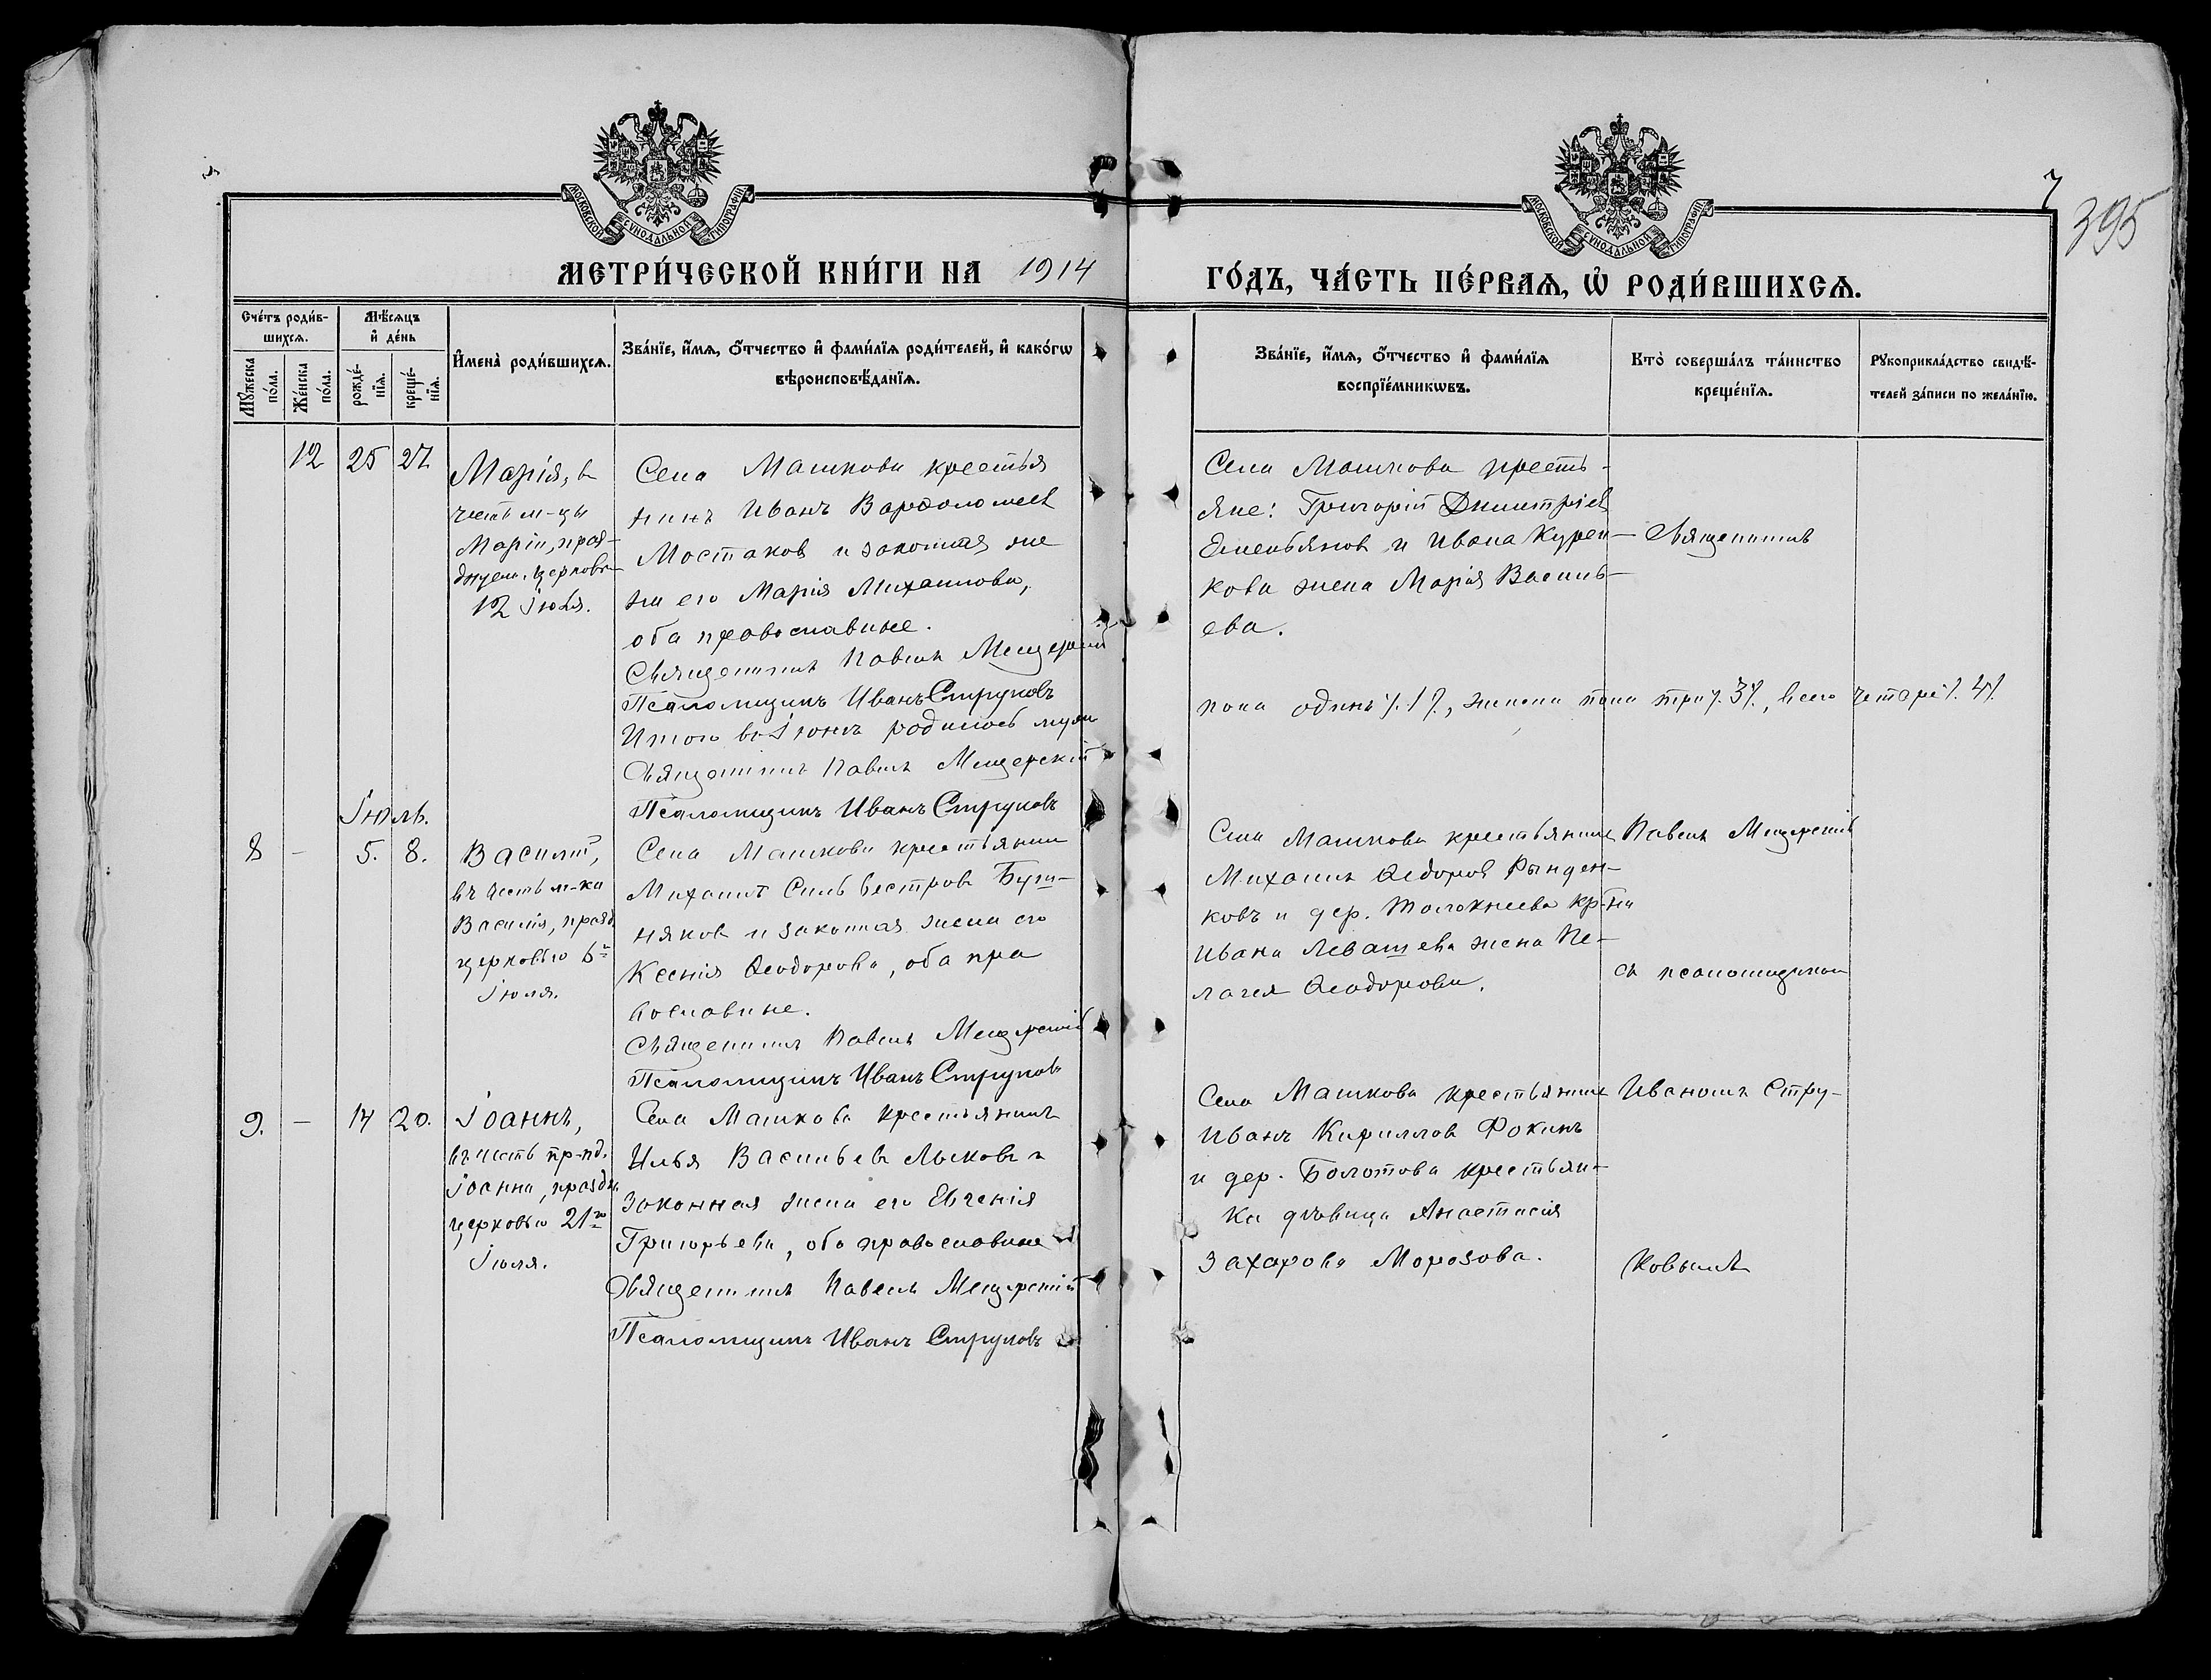 7
395
МОСКОВСКОЙ СУНОДАЛЬНОЙ ТИПОГРАФІИ
МОСКОВСКОЙ СУНОДАЛЬНОЙ ТИПОГРАФІИ
МЕТРИ́ЧЕСКОЙ КНИ́ГИ НА 1914 ГО́ДЪ, ЧА́СТЬ ПЕ́РВАѦ, Ѡ҆ РОДИ́ВШИХСѦ.
Сче́тъ роди́в-
шихсѧ.
Мꙋ́жеска по́ла.
Же́нска по́ла.
Мѣ́сѧцъ
и҆ де́нь
рожде́-
нїѧ.
креще́-
нїѧ.
И҆мена̀ роди́вшихсѧ.
Зва́нїе, и҆́мѧ, ѻ҆́тчество и҆ фами́лїѧ роди́телей, и҆ како́гѡ
вѣроисповѣ́данїѧ.
Зва́нїе, и҆́мѧ, ѻ҆́тчество и҆ фами́лїѧ
воспрїе́мникѡвъ.
Кто̀ соверша́лъ та́инство
креще́нїѧ.
Рꙋкоприкла́дство свидѣ́-
телей за́писи по жела́нїю.
12 25 27
Марія, в
честь м-цы
Маріи, праз-
днуем. церковь-
12 Іюля.
Села Машкова крестья
нинъ Иванъ Варфоломеев
Мостаков и законная же
на его Марія Михаилова,
оба православные.
Священникъ Павелъ Мещерскій
Псаломщикъ Иванъ Струковъ
Итого въ Іюнѣ родилось муж
Священникъ Павелъ Мещерскій
Псаломщикъ Иванъ Струковъ
Села Машкова кресть-
яне: Григорій Димитріев
Емельянов и Ивана Курен-
кова жена Марія Василь-
ева.
Священникъ
пола одинъ /.1/., женска пола три /.3/., всего четыре /.4/.
Іюль.
8 - 5. 8.
Василій,
въ честь м-ка
Василія, празд.
церковью 6го
Іюля.
Села Машкова крестьянин
Михаилъ Сильвестров Буш-
няков и законная жена его
Ксенія Ѳеодорова, оба пра
вославные.
Священникъ Павелъ Мещерскій
Псаломщикъ Иванъ Струковъ
Села Машкова крестьянинъ
Михаилъ Ѳедоров Рынден-
ковъ и дер. Толокнеева кр-на
Ивана Левашева жена Пе-
лагея Ѳеодорова.
Павелъ Мещерскій
съ псаломщиком
9. - 17 20.
Іоаннъ,
въ честь пр-пд.
Іоанна, праздн.
церковью 21го
Іюля.
Села Машкова крестьянинъ
Илья Васильев Лысков и
законная жена его Евгенія
Григорьева, оба православные
Священникъ Павелъ Мещерскій
Псаломщикъ Иванъ Струковъ
Села Машкова крестьянинъ
Иванъ Кириллов Фокинъ
и дер. Болотова крестьян-
ка дѣвица Анастасія
Захарова Морозова.
Иваномъ Стру-
ковымъ